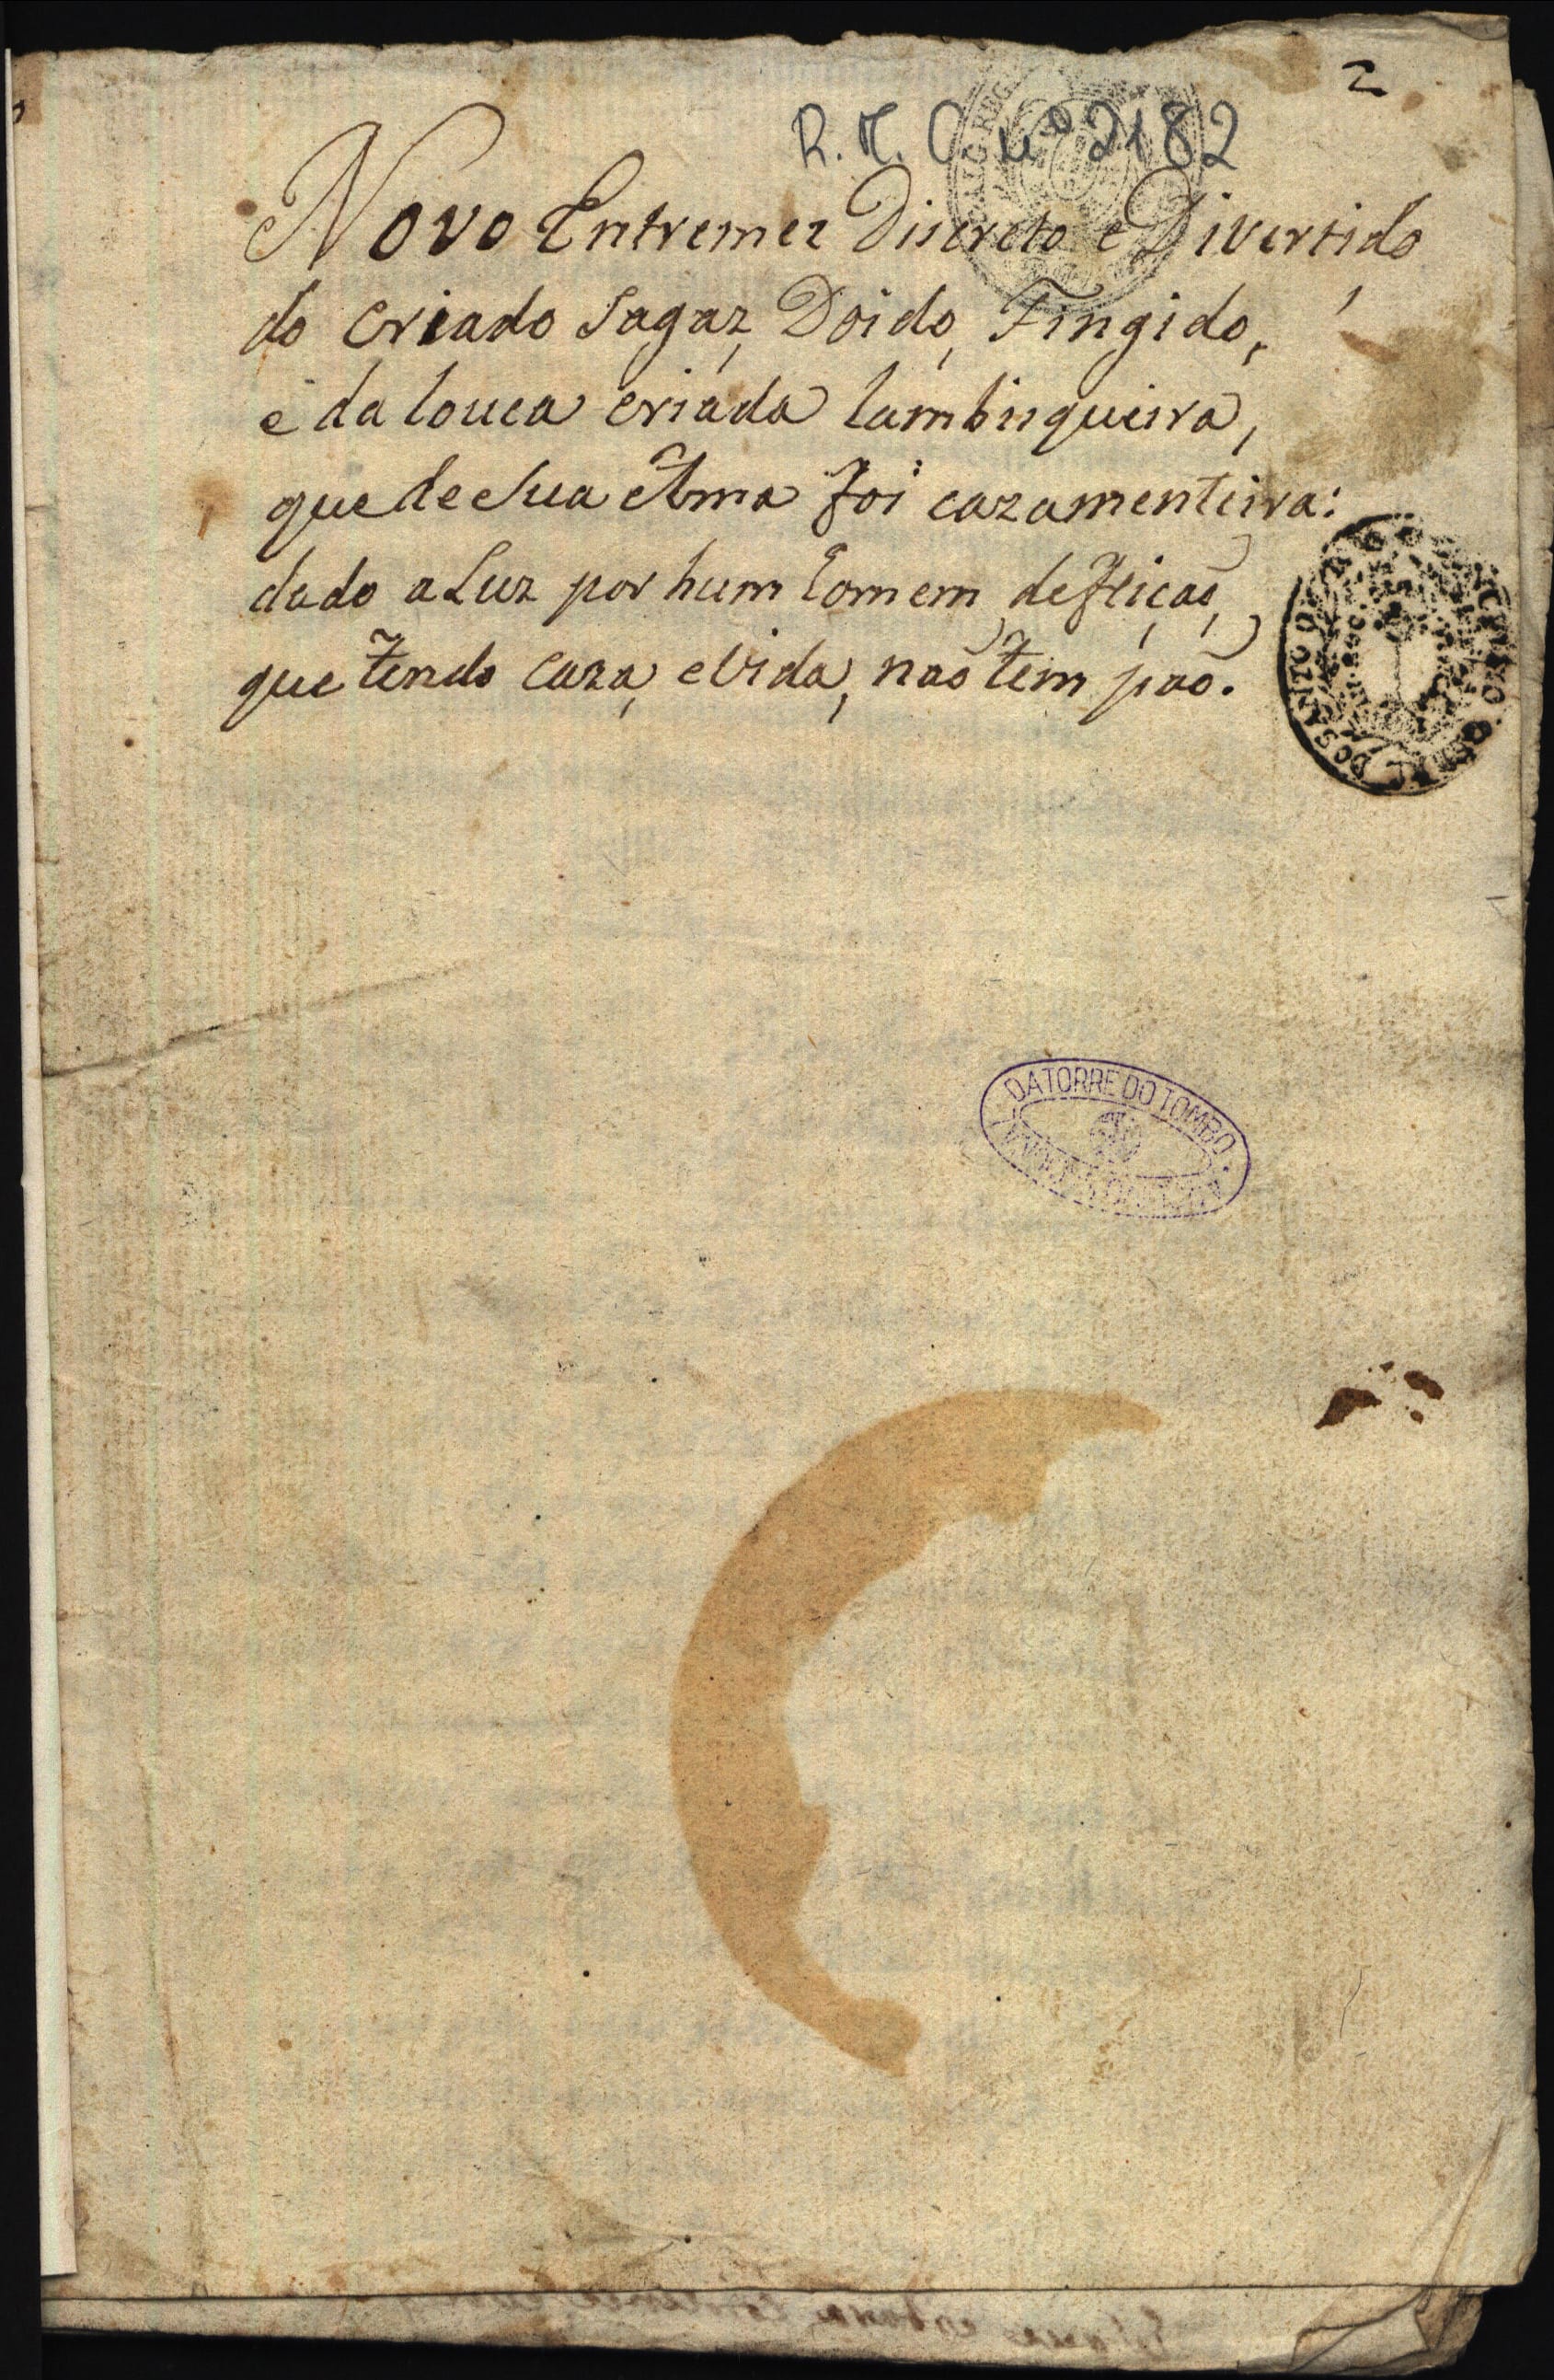 2
R. M. C nº 2182
Novo Entremez Discreto e Divertido,
do criado Sagaz, Doido, Fingido,
e da louca criada lambisqueira,
que de Sua Ama foi cazamenteira:
dado a Luz por hum homem de fiçaõ,
que tendo caza, e vida, naõ tem paõ.
DA TORRE DO TOMBO